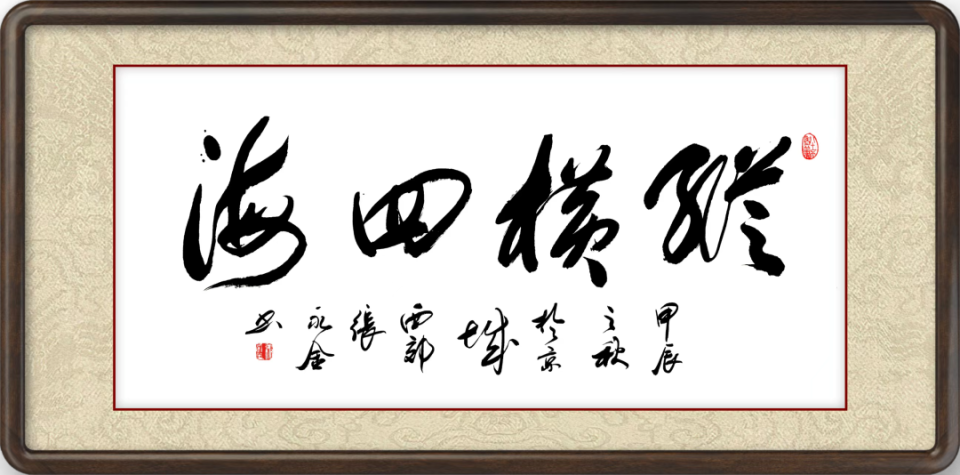 縱橫四海
甲辰
之秋
於京
城
西郊
張
永金
书